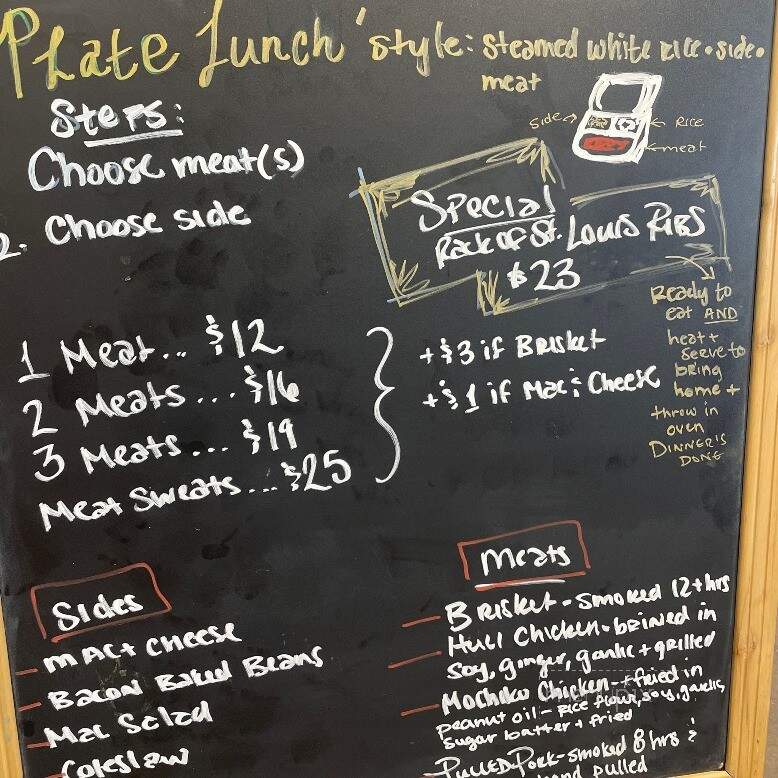 Plate Lunch 'style: steamed white rice • side •
meat
Steps:
Choose meat(s)
2. Choose side
side
Rice
meat
Special
Rack of St. Louis Ribs
$23
Ready to
eat AND
heat +
serve to
bring
home +
throw in
oven
DINNER'S
DONE
1 Meat... $12
2 Meats... $16
3 Meats... $19
Meat Sweats... $25
+ $3 if Brisket
+ $1 if Mac & Cheese
Sides
- Mac + Cheese
- Bacon Baked Beans
- Mac Salad
- Coleslaw
Meats
- Brisket - smoked 12+ hrs
- Huli Chicken - brined in
soy, ginger, garlic + grilled
- Mochiko Chicken - fried in
peanut oil - rice flour, soy, garlic,
sugar batter + fried
- Pulled Pork - smoked 8 hrs &
hand pulled